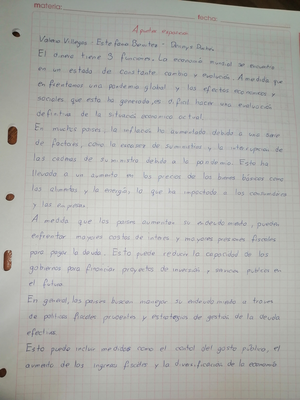 materia:
fecha:
Apuntes exposicion
Valeria Villegas - Estefania Benitez -
El dinero tiene 3 funciones. La economía mundial se encuentra
en un estado de constante cambio y evolución. A medida que
enfrentamos una pandemia global y los efectos económicos y
sociales que esta ha generado, es difícil hacer una evaluación
definitiva de la situación económica actual.
En muchos países, la inflación ha aumentado debido a una serie
de factores, como la escasez de suministros y la interrupción de
las cadenas de suministro debido a la pandemia. Esto ha
llevado a un aumento en los precios de los bienes básicos como
los alimentos y la energía, lo que ha impactado a los consumidores
y las empresas.
A medida que los países aumentan su endeudamiento, pueden
enfrentar mayores costos de interés y mayores presiones fiscales
para pagar la deuda. Esto puede reducir la capacidad de los
gobiernos para financiar proyectos de inversión y servicios públicos en
el futuro.
En general, los países buscan manejar su endeudamiento a través
de políticas fiscales prudentes y estrategias de gestión de la deuda
efectivas.
Esto puede incluir medidas como el control del gasto público, el
aumento de los ingresos fiscales y la diversificación de la economía